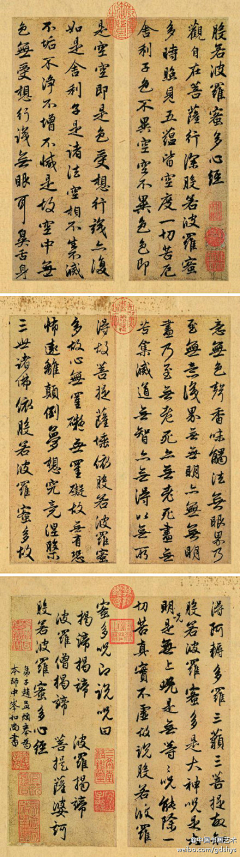 般若波羅蜜多心經
觀自在菩薩行深般若波羅蜜
多時照見五蘊皆空度一切苦厄
舍利子色不異空空不異色色即
是空空即是色受想行識亦復
如是舍利子是諸法空相不生滅
不垢不淨不增不減是故空中無
色無受想行識無眼耳鼻舌身
意無色聲香味觸法無眼界乃
至無意識界無無明亦無無明
盡乃至無老死亦無老死盡無
苦集滅道無智亦無得以無所
得故菩提薩埵依般若波羅蜜
多故心無罣礙無罣礙故無有恐
怖遠離顛倒夢想究竟涅槃
三世諸佛依般若波羅蜜多故
得阿耨多羅三藐三菩提故知
般若波羅蜜多是大神咒是大
明咒是無上咒是無等等咒能除一
切苦真實不虛故說般若波羅
蜜多咒即說咒曰
揭諦揭諦 波羅揭諦
波羅僧揭諦 菩提薩婆訶
般若波羅蜜多心經
弟子趙孟頫奉為
本師中峯和尚書